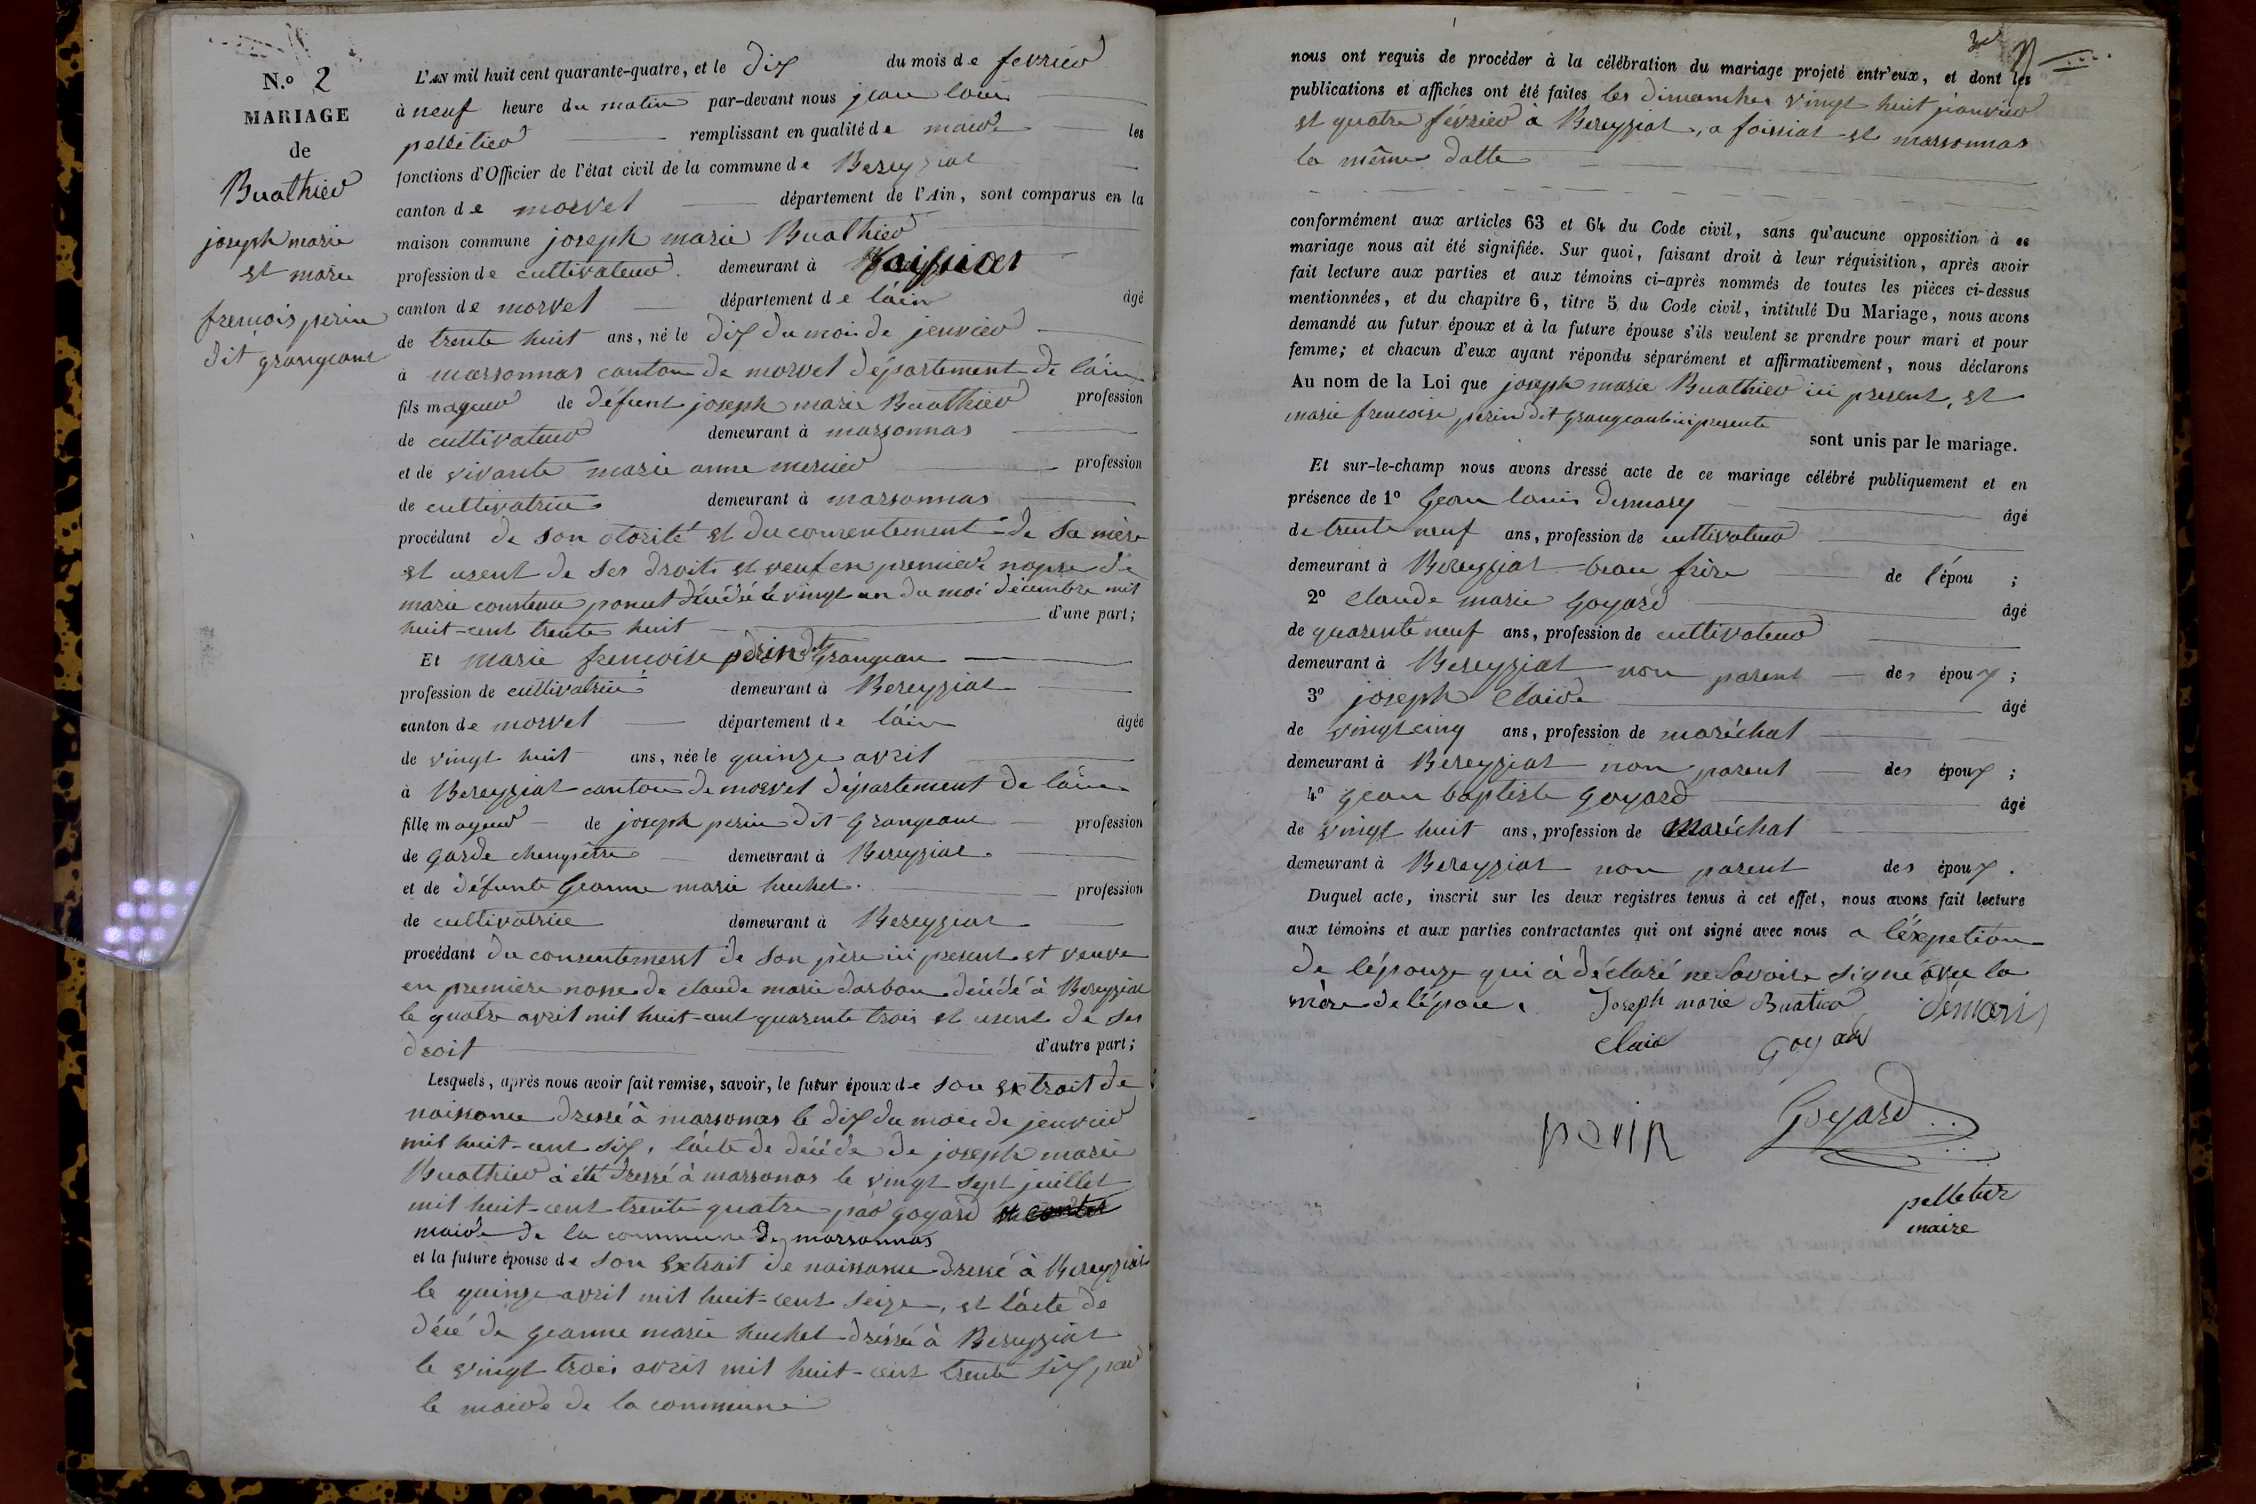 N.º 2
MARIAGE
de
Buathier
joseph marie
et marie
frencoise perin
dit grangeant
L'AN mil huit cent quarante-quatre, et le dix du mois de fevrier
à neuf heure du matin par-devant nous jean louis
pelletier remplissant en qualité de maire les
fonctions d'Officier de l'état civil de la commune de Bereyziat
canton de morvel département de l'Ain, sont comparus en la
maison commune joseph marie Buathier
profession de cultivateur demeurant à foissiat
canton de morvel département de láin âgé
de trente huit ans, né le dix du moi de jenvier
à marsonnas canton de morvel département de láin
fils mageur de défunt joseph marie Buathier profession
de cultivateur demeurant à marsonnas
et de vivante marie anne mercier profession
de cultivatrice demeurant à marsonnas
procédant de son otorité et du consentement de sa mère
et usent de ses droits et veuf en premier nopse de
marie constence poncet décédé le vingt un du moi décembre mil
huit-cent trente huit d'une part;
Et marie frencoise perin dit Grangeant
profession de cultivatrice demeurant à Bereyziat
canton de morvel département de láin âgée
de vingt huit ans, née le quinze avril
à Bereyziat canton de morvel département de láin
fille mageur de joseph perin dit Grangeant profession
de garde chenpêtre demeurant à Bereyziat
et de défunte Geanne marie huchet profession
de cultivatrice demeurant à Bereyziat
procédant du consentement de son père ici present et veuve
en première nosse de claude marie darbon décédé à Bereyziat
le quatre avril mil huit-cent quarente trois et usent de ses
droit d'autre part;
Lesquels, après nous avoir fait remise, savoir, le futur époux de son extrait de
naissance dressé à marsonnas le dix du moi de jenvier
mil huit-cent six, l'acte de décéde de joseph marie
Buathier à été dressé à marsonas le vingt sept juillet
mil huit-cent trente quatre par goyard
maire de la commune de marsonnas
et la future épouse de son extrait de naissance dressé à Bereyziat
le quinze avril mil huit-cent seize, et l'acte de
décé de geanne marie huchet dréssé à Bereyziat
le vingt trois avril mil huit-cent trente six par
le maire de la commune
nous ont requis de procéder à la célébration du mariage projeté entr'eux, et dont les
publications et affiches ont été faites les dimanches vingt huit janvier
et quatre février à Bereyziat, a foissiat et marsonnas
la même datte
conformément aux articles 63 et 64 du Code civil, sans qu'aucune opposition à ce
mariage nous ait été signifiée. Sur quoi, faisant droit à leur réquisition, après avoir
fait lecture aux parties et aux témoins ci-après nommés de toutes les pièces ci-dessus
mentionnées, et du chapitre 6, titre 5 du Code civil, intitulé Du Mariage, nous avons
demandé au futur époux et à la future épouse s'ils veulent se prendre pour mari et pour
femme; et chacun d'eux ayant répondu séparément et affirmativement, nous déclarons
Au nom de la Loi que joseph marie Buathier ici present, et
marie frencoise perin dit grangeant ici presente
sont unis par le mariage.
Et sur-le-champ nous avons dressé acte de ce mariage célébré publiquement et en
présence de 1º Gean louis demary âgé
de trente neuf ans, profession de cultivateur
demeurant à Bereyziat beau frère de l'épou ;
2º claude marie Goyard âgé
de quarente neuf ans, profession de cultivateur
demeurant à Bereyziat non parent des époux ;
3º joseph claire âgé
de vingt cinq ans, profession de maréchal
demeurant à Bereyziat non parent des époux ;
4º gean baptiste goyard âgé
de vingt huit ans, profession de maréchal
demeurant à Bereyziat non parent des époux.
Duquel acte, inscrit sur les deux registres tenus à cet effet, nous avons fait lecture
aux témoins et aux parties contractantes qui ont signé avec nous a léxpetion
de lépouze qui à déclaré ne savoire signé avec la
mère de lépou. Joseph marie Buatier démari
claire goyard
perin Goyard
pelletier
maire